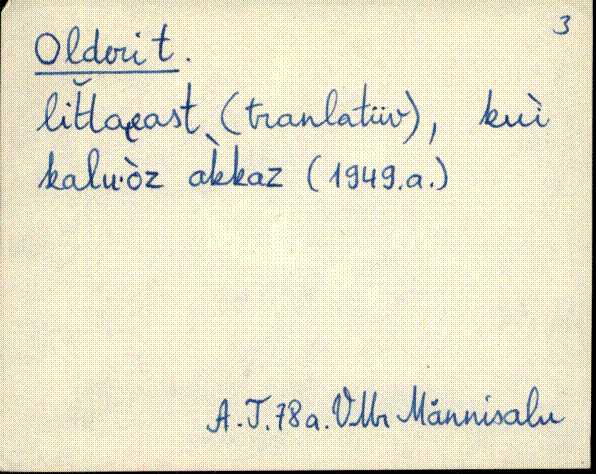 3
Oldori t.
litlaeast (tranlatiiv), kuì
kalu·òz àkkaz (1949.a.)
A.T. 78a. VMr Männisalu